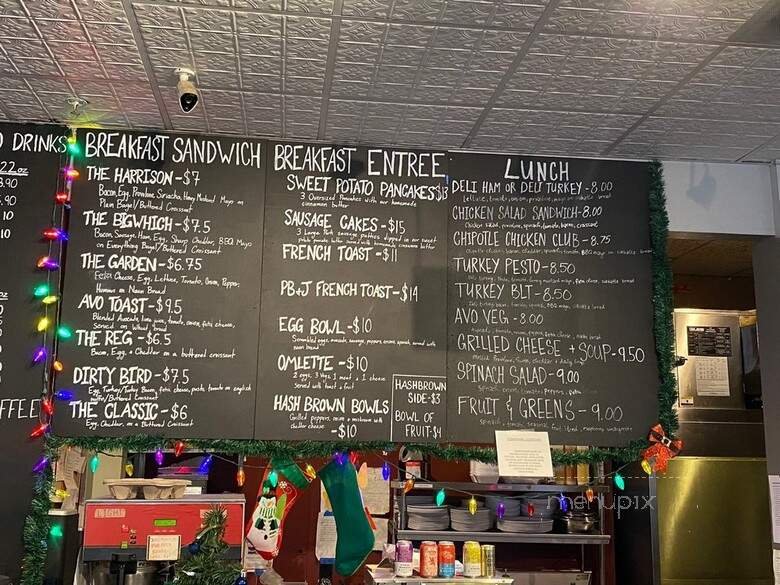 DRINKS
22oz
3.90
.90
10
.10
FFEE
BREAKFAST SANDWICH
THE HARRISON-$7
Bacon, Egg, Provolone, Sriracha, Honey Mustard Mayo on
Plain Bagel/Buttered Croissant
THE BIGWHICH-$7.5
Bacon, Sausage, Ham, Egg, Sharp Cheddar, BBQ Mayo
on Everything Bagel/Buttered Croissant
THE GARDEN-$6.75
Feta Cheese, Egg, Lettuce, Tomato, Onion, Pepper,
Hummus on Naan Bread
AVO TOAST-$9.5
Blended Avocado, lime juice, tomato, onion, feta cheese,
served on Wheat bread
THE REG-$6.5
Bacon, Egg, & Cheddar on a buttered croissant
DIRTY BIRD-$7.5
Egg, Turkey/Turkey Bacon, feta cheese, pesto, tomato on english
muffin/Buttered Croissant
THE CLASSIC-$6
Egg, Cheddar, on a Buttered Croissant
BREAKFAST ENTREE
SWEET POTATO PANCAKES $13
3 Oversized Pancakes with our homemade
cinnamon butter
SAUSAGE CAKES-$15
3 Large Pork sausage patties dipped in our sweet
potato pancake batter served with homemade cinnamon butter
FRENCH TOAST-$11
PB+J FRENCH TOAST-$14
EGG BOWL-$10
Scrambled eggs, avocado, sausage, peppers, onions, spinach, served with
naan bread
OMLETTE-$10
2 eggs, 3 Vegs, 1 meat & 1 cheese
Served with toast & fruit
HASH BROWN BOWLS
Grilled peppers, onion & mushroom with
cheddar cheese
-$10
HASHBROWN
SIDE-$3
BOWL OF
FRUIT-$4
LUNCH
DELI HAM OR DELI TURKEY-8.00
lettuce, tomato, onion, provolone, mayo on wheat bread
CHICKEN SALAD SANDWICH-8.00
Chicken salad, provolone, spinach, tomato, bacon, croissant
CHIPOTLE CHICKEN CLUB-8.75
TURKEY PESTO-8.50
TURKEY BLT-8.50
AVO VEG-8.00
Avocado, tomato, onion, pepper, feta cheese, naan bread
GRILLED CHEESE + SOUP-9.50
SPINACH SALAD-9.00
Spinach, onions, tomatoes, peppers, feta
FRUIT & GREENS-9.00
menupix